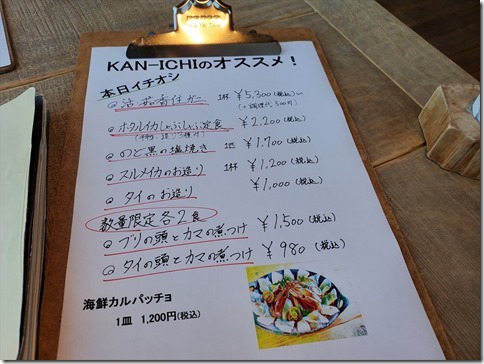 KAN-ICHIのオススメ！
本日イチオシ
◎活 茹香住ガニ 1杯 ¥5,300(税込)〜
(+調理代500円)
◎ホタルイカしゃぶしゃぶ定食 ¥2,200(税込)
◎のど黒の塩焼き 1匹 ¥1,700(税込)
◎スルメイカのお造り 1杯 ¥1,200(税込)
◎タイのお造り ¥1,000(税込)
数量限定各2食
◎ブリの頭とカマの煮つけ ¥1,500(税込)
◎タイの頭とカマの煮つけ ¥980(税込)
海鮮カルパッチョ
1皿 1,200円(税込)